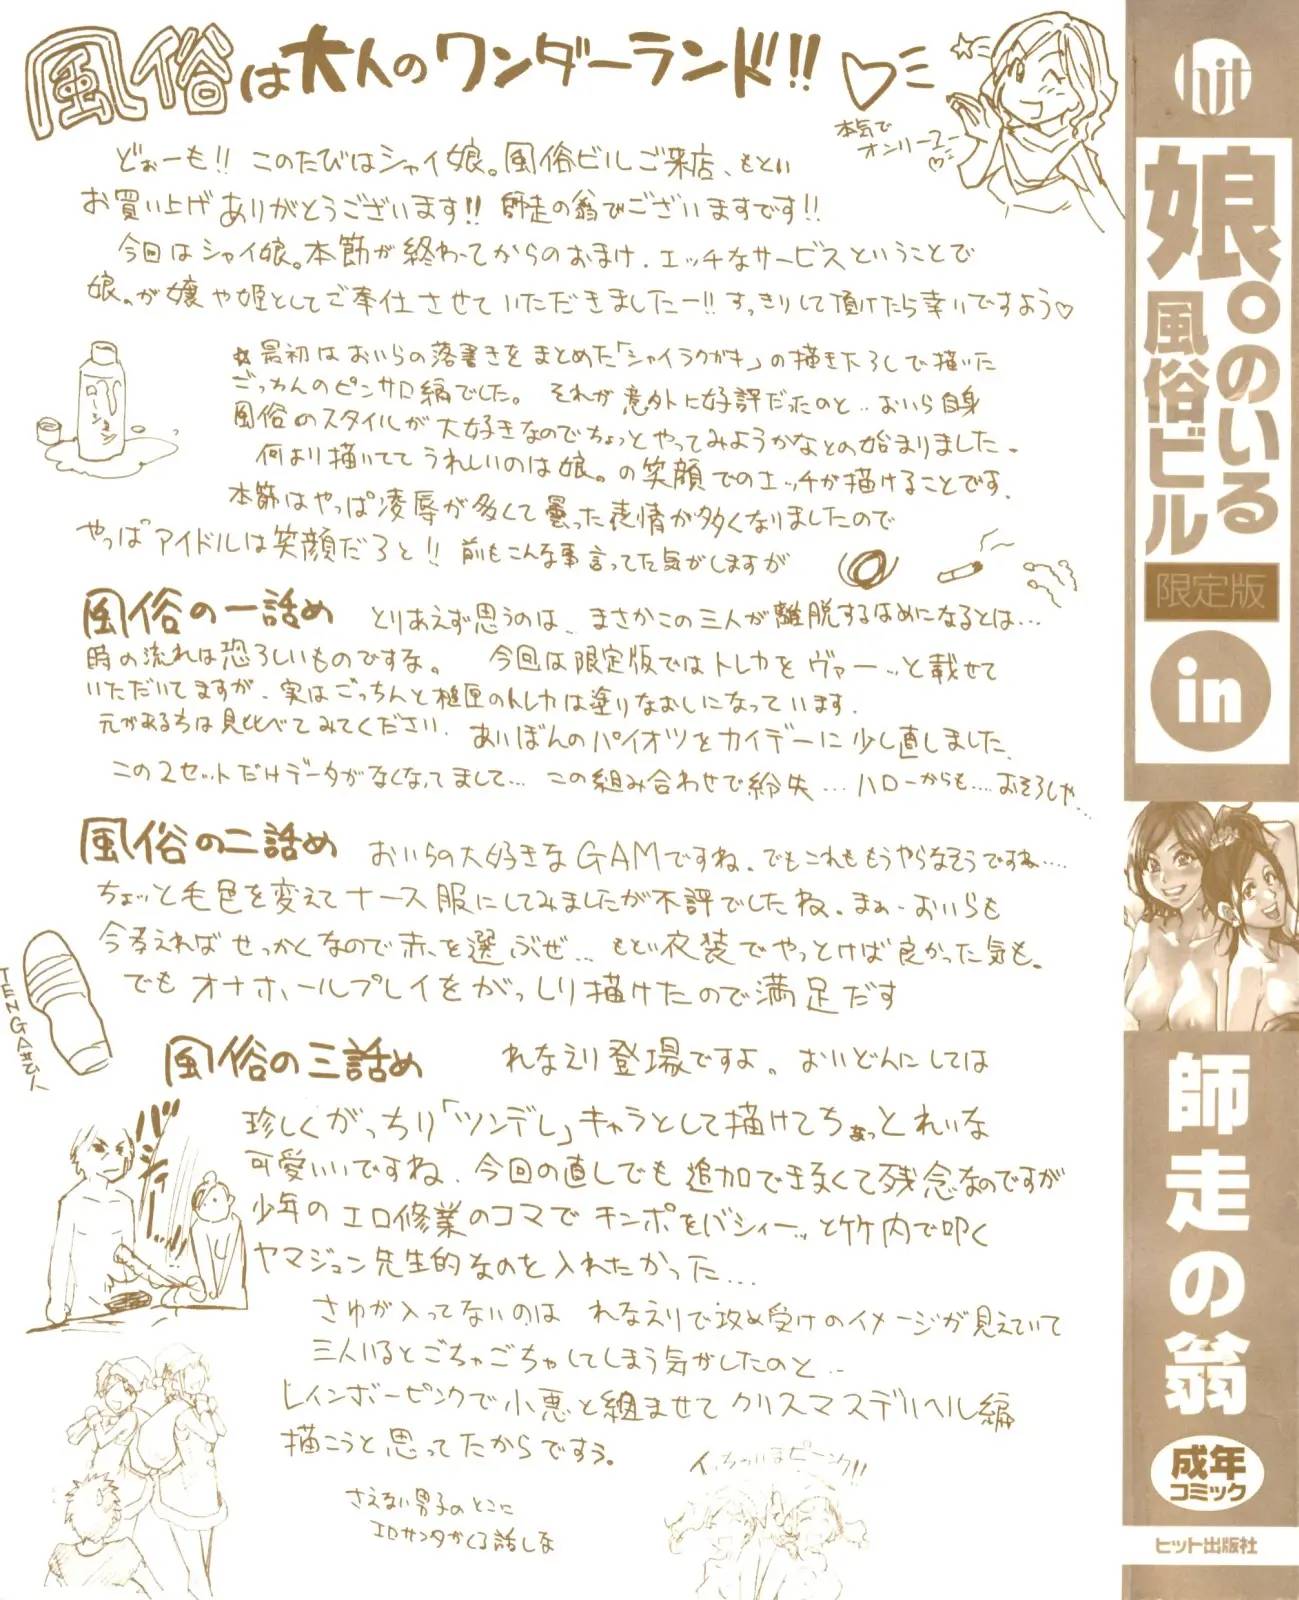 風俗は大人のワンダーランド!!
本気で
オンリーユー
どぉーも!! このたびはシャイ娘。風俗ビルご来店、もとい
お買い上げありがとうございます!! 師走の翁でございますです!!
今回はシャイ娘。本節が終わってからのおまけ、エッチなサービスということで
娘。が嬢や姫としてご奉仕させていただきましたー!! すっきりして頂けたら幸いですよう♡
ローション
☆最初はおいらの落書きをまとめた「シャイラクガキ」の描き下ろしで描いた
ごっちんのピンサロ編でした。それが意外に好評だったのと‥おいら自身
風俗のスタイルが大好きなのでちょっとやってみようかなとの始まりました。
何より描いててうれしいのは娘。の笑顔でのエッチが描けることです。
本節はやっぱ凌辱が多くて曇った表情が多くなりましたので
やっぱアイドルは笑顔だろと!! 前もこんな事言ってた気がしますが
風俗の一話め とりあえず思うのは、まさかこの三人が離脱するはめになるとは…
時の流れは恐ろしいものですな。 今回は限定版ではトレカをヴァーッと載せて
いただいてますが、実はごっちんと槌匣のトレカは塗りなおしになっています。
元がある方は見比べてみてください。あいぼんのパイオツをカイデーに少し直しました。
この2セットだけデータがなくなってまして… この組み合わせで紛失…ハローからも…おそろしや…
風俗の二話め おいらの大好きなGAMですね。でもこれももうやらなそうですね…
ちょっと毛色を変えてナース服にしてみましたが不評でしたね。まぁ‥おいらも
今考えればせっかくなので赤を選ぶぜ…もとい衣装でやっとけば良かった気も。
でもオナホールプレイをがっしり描けたので満足だす
風俗の三話め れなえり登場ですよ。おいどんにしては
珍しくがっちり「ツンデレ」キャラとして描けてちょっとれいな
可愛いいですね。今回の直しでも追加できなくて残念なのですが
さゆが入ってないのは れなえりで攻め受けのイメージが見えていて
三人いるとごちゃごちゃしてしまう気がしたのと‥
レインボーピンクで小悪と組ませてクリスマスデリヘル編
描こうと思ってたからですう。
さえない男子のとこに
エロサンタがくる話しな
hit
娘。のいる
風俗ビル
限定版
in
師走の翁
成年
コミック
ヒット出版社